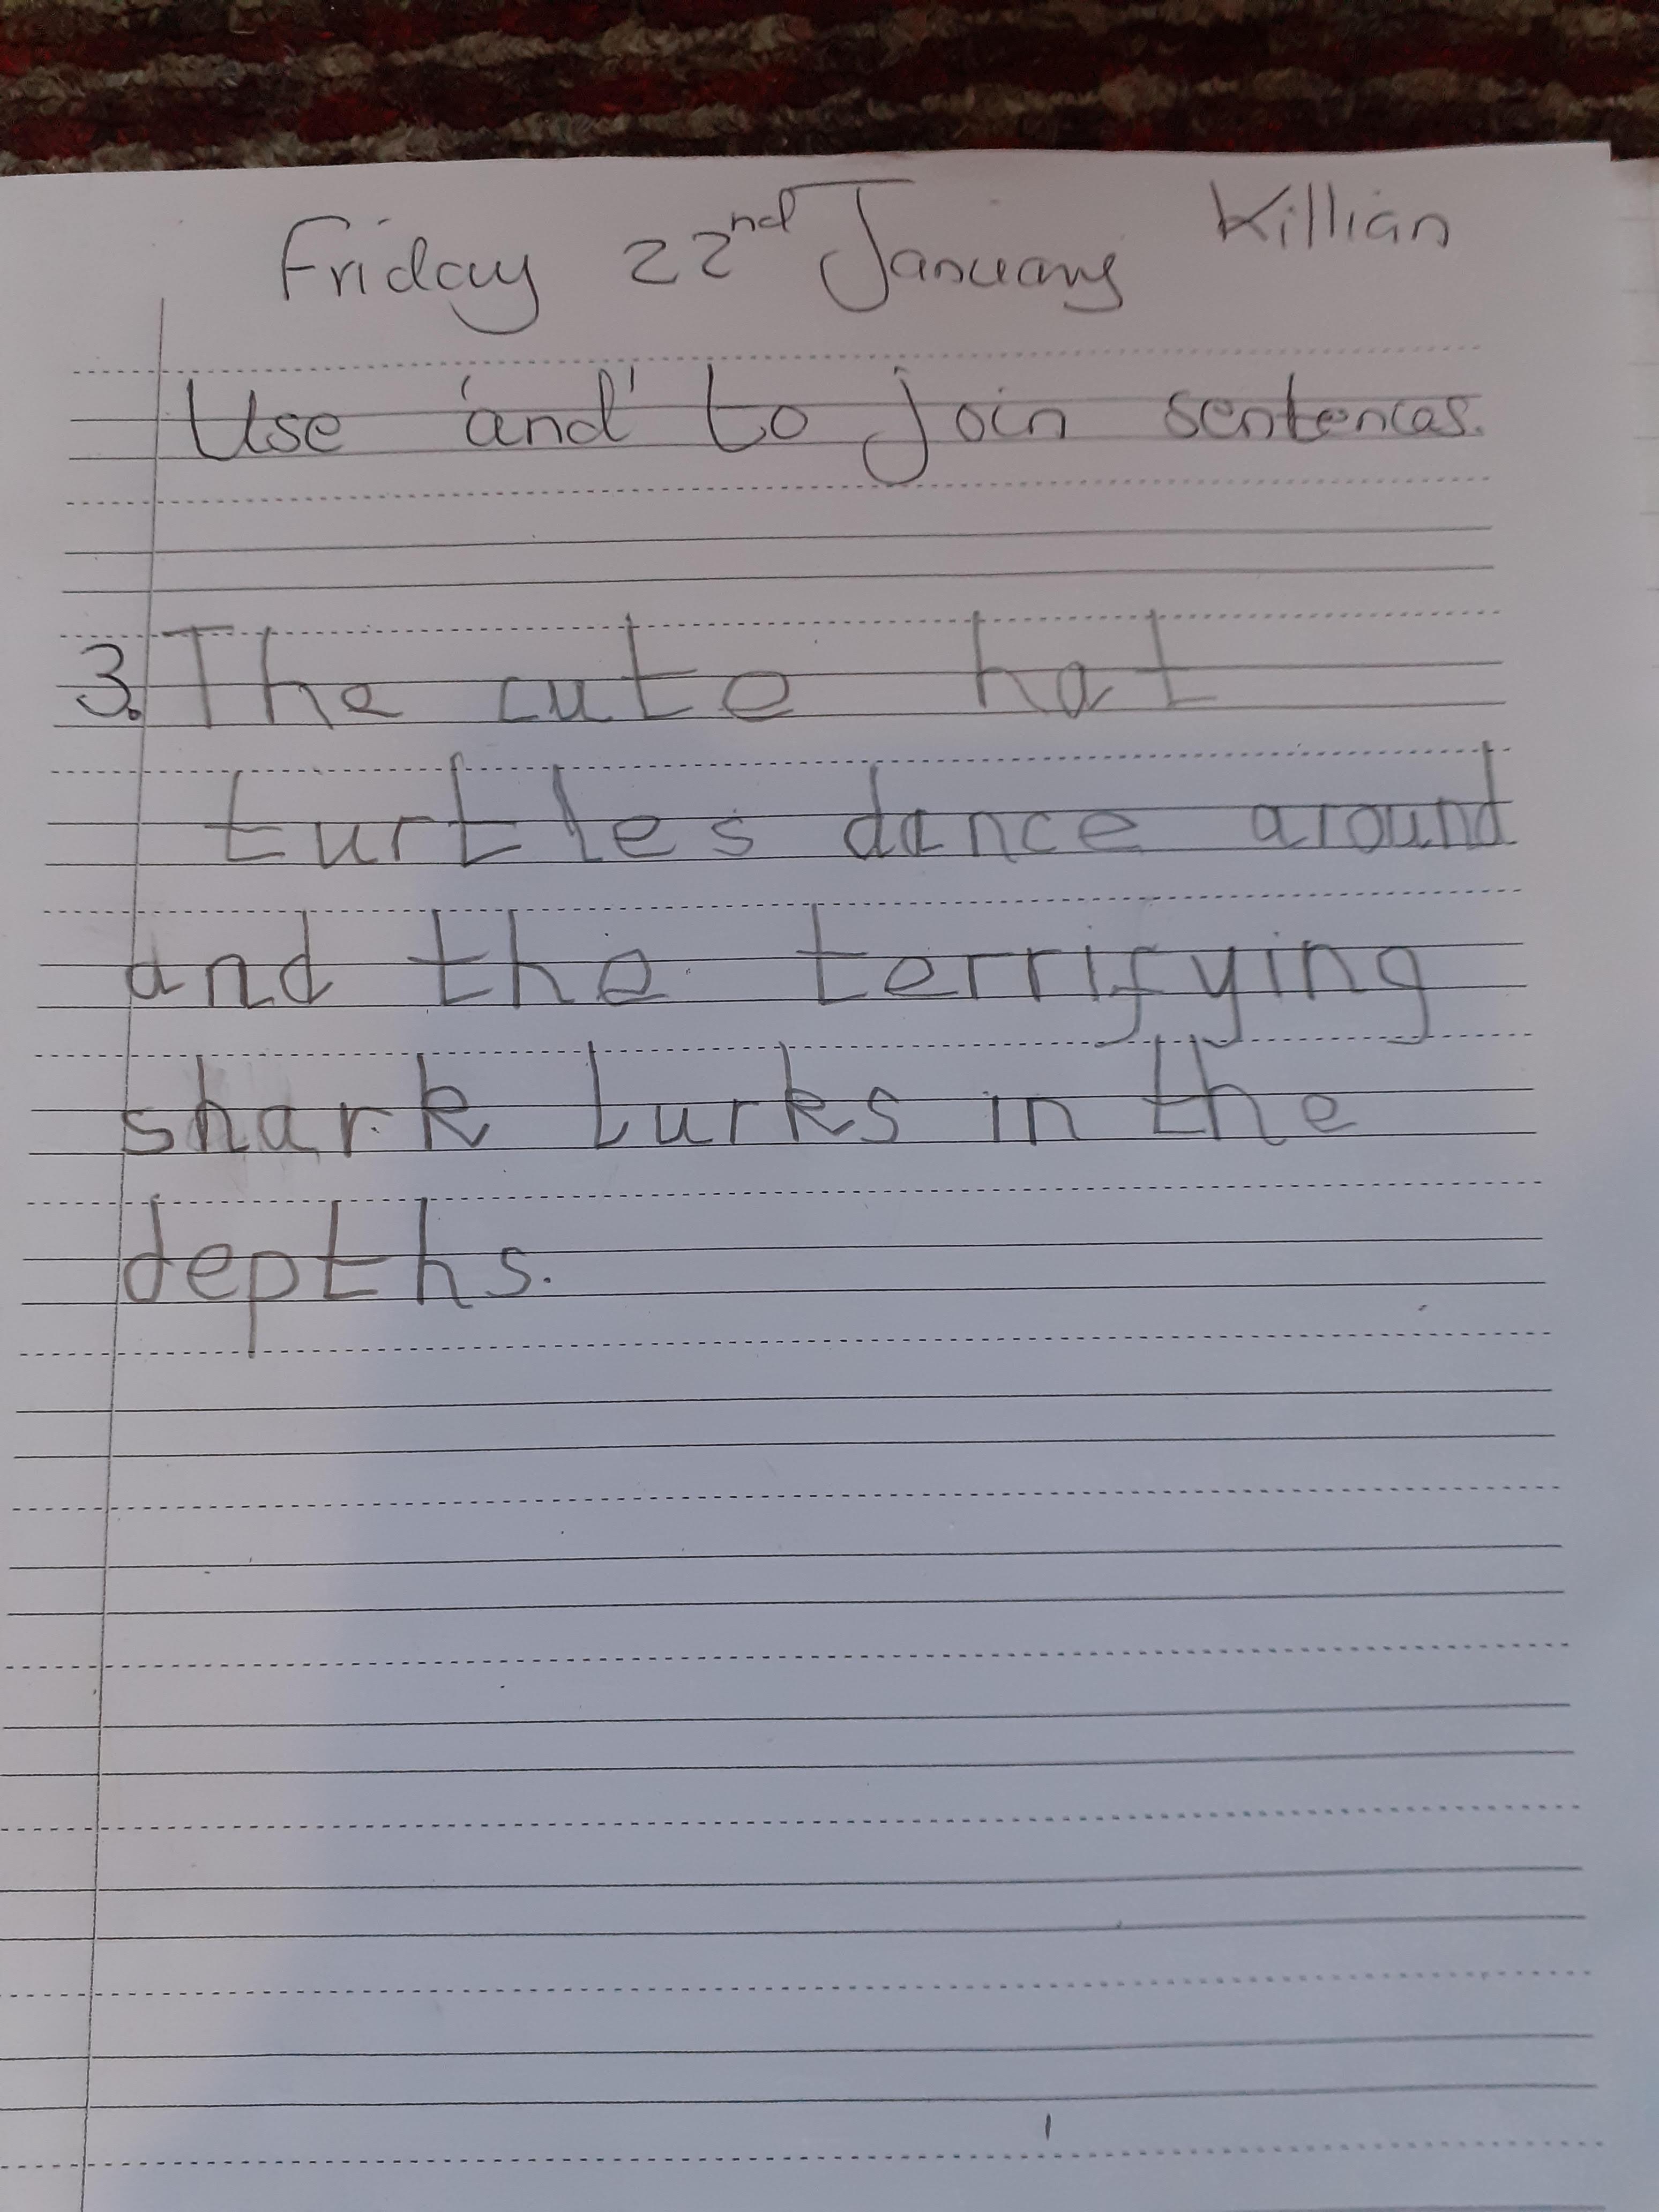 Friday 22nd January Killian
Use 'and' to join sentences.
3. The cute hat
turtles dance around
and the terrifying
shark lurks in the
depths.